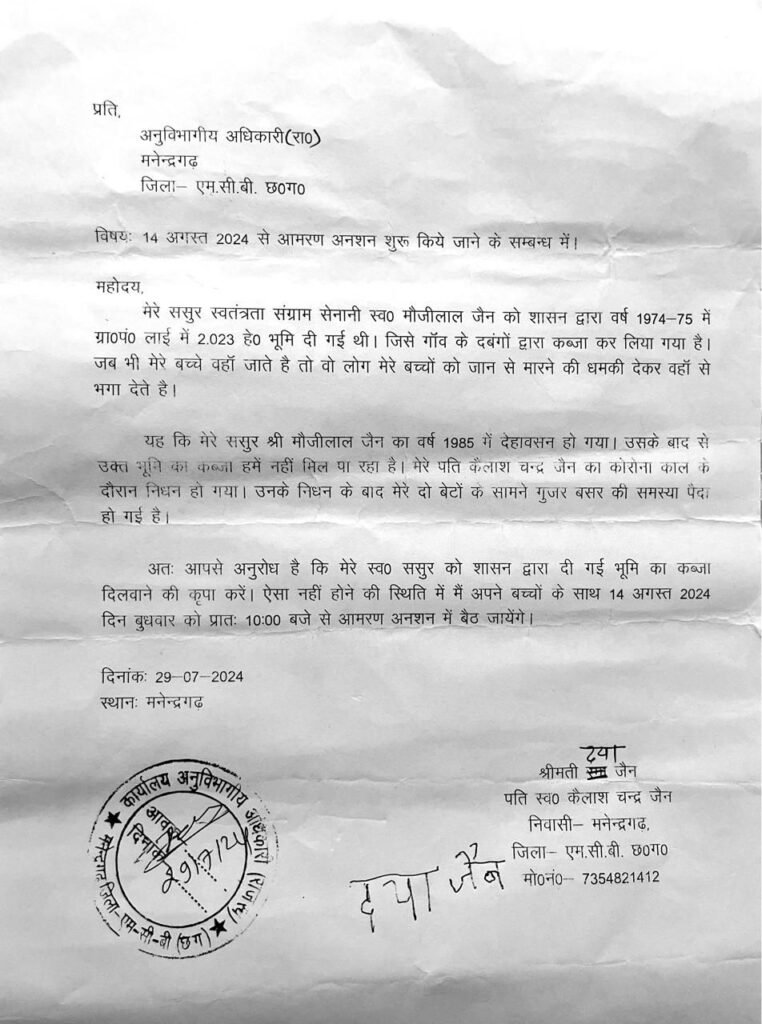 प्रति,
अनुविभागीय अधिकारी(रा0)
मनेन्द्रगढ़
जिला– एम.सी.बी. छ0ग0
विषयः 14 अगस्त 2024 से आमरण अनशन शुरू किये जाने के सम्बन्ध में।
महोदय,
मेरे ससुर स्वतंत्रता संग्राम सेनानी स्व0 मौजीलाल जैन को शासन द्वारा वर्ष 1974–75 में
ग्रा0पं0 लाई में 2.023 हे0 भूमि दी गई थी। जिसे गॉव के दबंगों द्वारा कब्जा कर लिया गया है।
जब भी मेरे बच्चे वहॉ जाते है तो वो लोग मेरे बच्चों को जान से मारने की धमकी देकर वहॉ से
भगा देते है।
यह कि मेरे ससुर श्री मौजीलाल जैन का वर्ष 1985 में देहावसन हो गया। उसके बाद से
उक्त भूमि का कब्जा हमें नहीं मिल पा रहा है। मेरे पति कैलाश चन्द्र जैन का कोरोना काल के
दौरान निधन हो गया। उनके निधन के बाद मेरे दो बेटों के सामने गुजर बसर की समस्या पैदा
हो गई है।
अतः आपसे अनुरोध है कि मेरे स्व0 ससुर को शासन द्वारा दी गई भूमि का कब्जा
दिलवाने की कृपा करें। ऐसा नहीं होने की स्थिति में मैं अपने बच्चों के साथ 14 अगस्त 2024
दिन बुधवार को प्रातः 10:00 बजे से आमरण अनशन में बैठ जायेंगे।
दिनांकः 29-07-2024
स्थानः मनेन्द्रगढ़
दया
श्रीमती जैन
पति स्व0 कैलाश चन्द्र जैन
निवासी– मनेन्द्रगढ़,
जिला– एम.सी.बी. छ0ग0
मो0नं0– 7354821412
दया जैन
कार्यालय अनुविभागीय अधिकारी (राजस्व)
जिला-एम-सी-बी (छग)
आवक
दिनांक
29/7/24